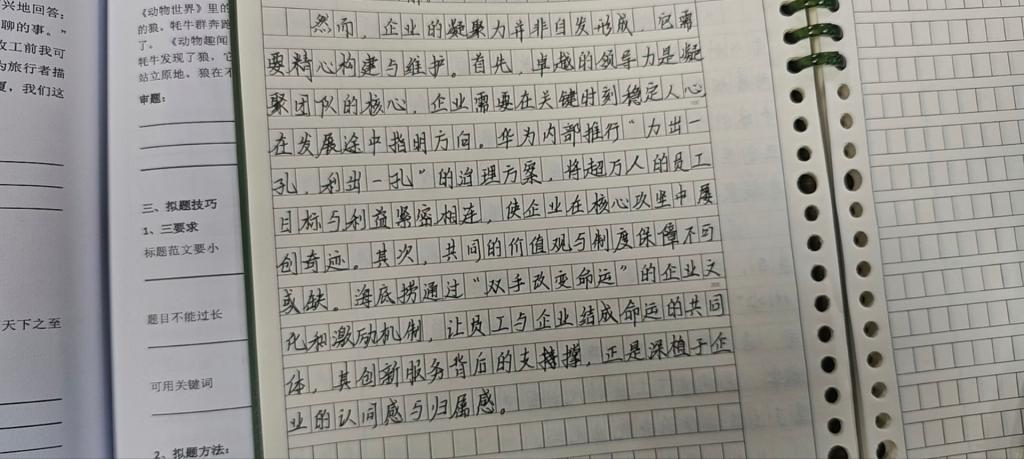 兴地回答:
聊的事。”
改工前我可
为旅行者描
夏，我们这
天下之至
《动物世界》里的
的狼。牦牛群奔跑
了。《动物趣闻
牦牛发现了狼，它
站立原地。狼在不
审题:
三、拟题技巧
1、三要求
标题范文要小
题目不能过长
可用关键词
2、拟题方法:
然而，企业的凝聚力并非自发形成，它需
要精心构建与维护。首先，卓越的领导力是凝
聚团队的核心，企业需要在关键时刻稳定人心
在发展途中指明方向。华为内部推行“力出一
孔，利出一孔”的治理方案，将超万人的员工
目标与利益紧密相连，使企业在核心攻坚中屡
创奇迹。其次，共同的价值观与制度保障不可
或缺。海底捞通过“双手改变命运”的企业文
化和激励机制，让员工与企业结成命运的共同
体，其创新服务背后的支持撑，正是深植于企
业的认同感与归属感。